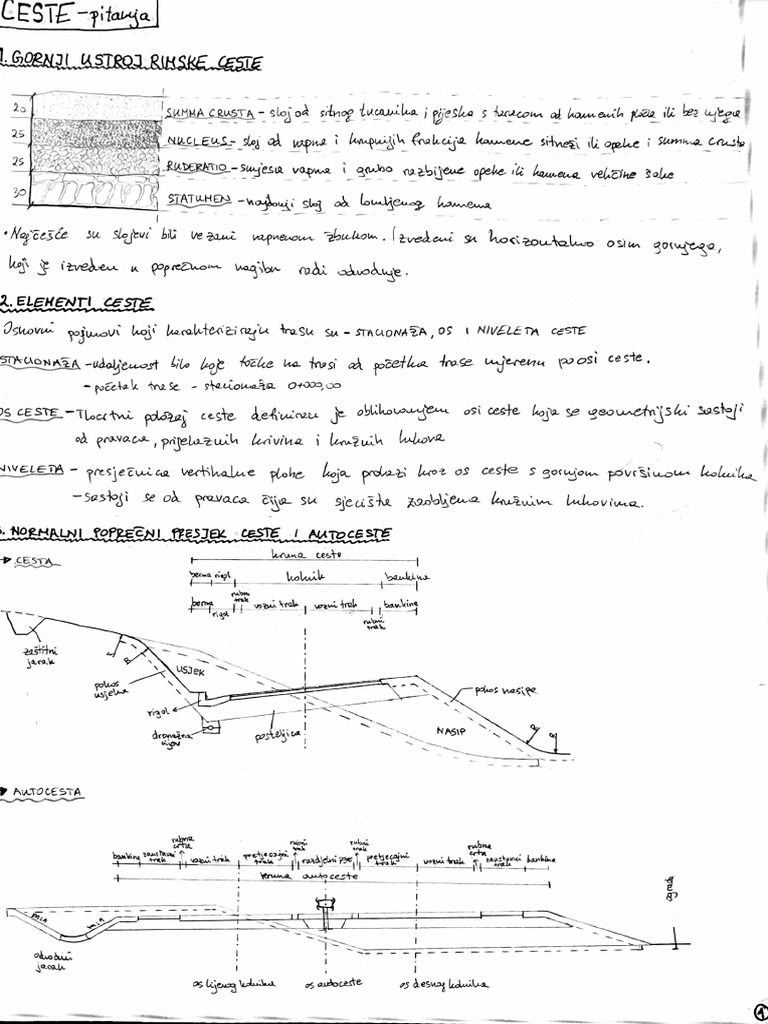 CESTE - pitanja
1. GORNJI USTROJ RIMSKE CESTE
20 SUMMA CRUSTA - sloj od sitnog tucanika i pijeska s taracom od kamenih ploča ili bez njega
25 NUCLEUS - sloj od vapna i krupnijih frakcija kamene sitneži ili opeke i summa crusta
25 RUDERATIO - smjesa vapna i grubo razbijene opeke ili kamena veličine šake
30 STATUMEN - najdonji sloj od lomljenog kamena
• Najčešće su slojevi bili vezani vapnenom žbukom. Izvedeni su horizontalno osim gornjega,
koji je izveden u poprečnom nagibu radi odvodnje.
2. ELEMENTI CESTE
Osnovni pojmovi koji karakteriziraju trasu su - STACIONAŽA, OS I NIVELETA CESTE
STACIONAŽA - udaljenost bilo koje točke na trasi od početka trase mjerena po osi ceste.
- početak trase - stacionaža 0+000,00
OS CESTE - Tlocrtni položaj ceste definiran je oblikovanjem osi ceste koja se geometrijski sastoji
od pravaca, prijelaznih krivina i kružnih lukova
NIVELETA - presječnica vertikalne plohe koja prolazi kroz os ceste s gornjom površinom kolnika
- sastoji se od pravaca čija su sjecišta zaobljena kružnim lukovima.
3. NORMALNI POPREČNI PRESJEK CESTE I AUTOCESTE
▸ CESTA
kruna ceste
berma rigol kolnik bankina
berma rigol rubni trak vozni trak vozni trak rubni trak bankina
zaštitni
jarak
pokos
usjeka
USJEK
rigol
drenažna
cijev
posteljica
NASIP
pokos nasipa
▸ AUTOCESTA
bankina zaustavni trak rubna crta vozni trak pretjecajni trak rubni trak razdjelni pojas rubni trak pretjecajni trak vozni trak rubna crta zaustavni trak bankina
kruna autoceste
ograda
min min
odvodni
jarak
os lijevog kolnika os autoceste os desnog kolnika
1